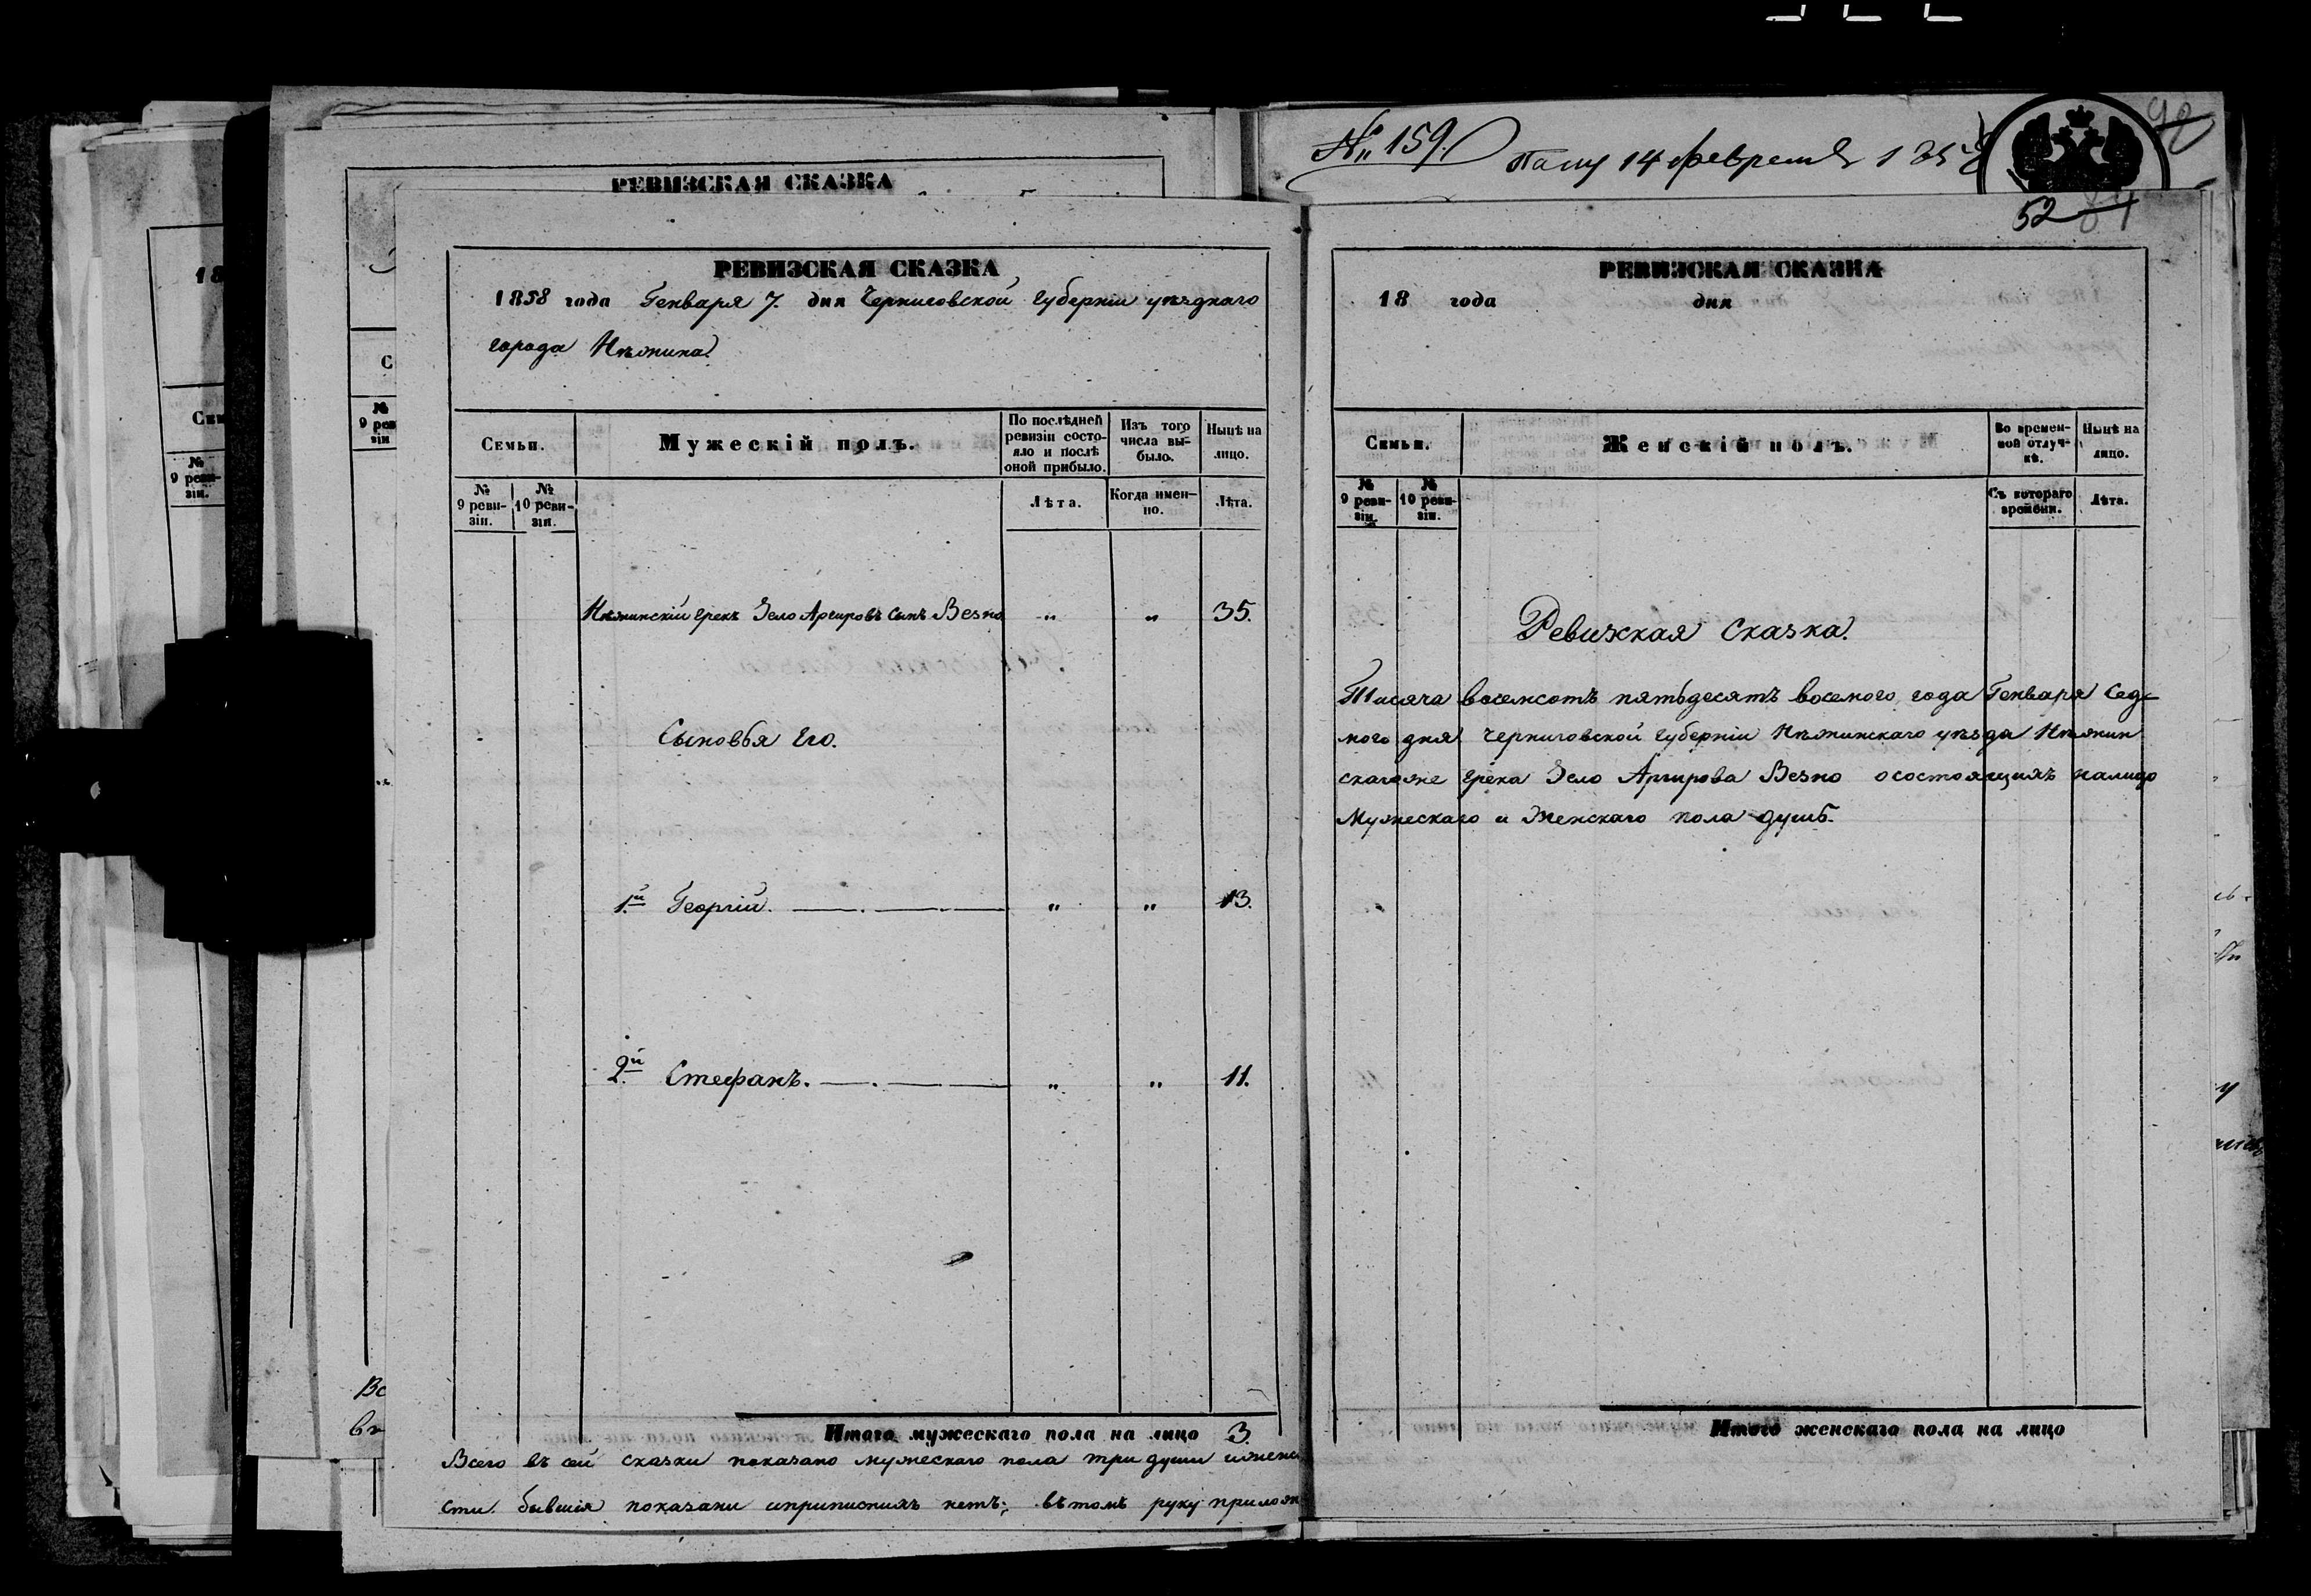 № 159. Пашу 14 февраля 1858
98
РЕВИЗСКАЯ СКАЗКА
18
С
Сем
№
9 рев
зіи
№
9 реви-
зіи.
Вс
въ
РЕВИЗСКАЯ СКАЗКА
1858 года Генваря 7. дня Черниговской Губерніи уѣзднаго
города Нѣжина.
Семьи.
Мужескій полъ.
По послѣдней
ревизіи состо-
яло и послѣ
оной прибыло.
Изъ того
числа вы-
было.
Нынѣ на
лицо.
№
9 реви-
зіи.
№
10 реви-
зіи.
Лѣта.
Когда имен-
но.
Лѣта.
Нѣжинскій Грекъ Зело Аргировъ Сынъ Везно „ „ 35.
Сыновья Его.
1.й Георгій. „ „ 13.
2.й Стефанъ. „ „ 11.
Итого мужескаго пола на лицо 3.
Всего въ сей сказки показано мужескаго пола три души
сти бывшія показани иприписнихъ нетъ; въ томъ руку прилож
52 81
РЕВИЗСКАЯ СКАЗКА
18 года дня
Семьи.
Женскій полъ.
Во времен-
ной отлуч-
кѣ.
Нынѣ на
лицо.
№
9 реви-
зіи.
№
10 реви-
зіи.
Съ котораго
времени.
Лѣта.
Ревижкая Сказка.
Тисяча восемсотъ пятьдесятъ восмого года Генваря Сед-
мого дня Черниговской Губерніи Нѣжинскаго уѣзда Нѣжин
скагоже Грека Зело Аргирова Везно осостоящихъ налицо
Мужескаго и Женскаго пола душъ.
Итого женскаго пола на лицо